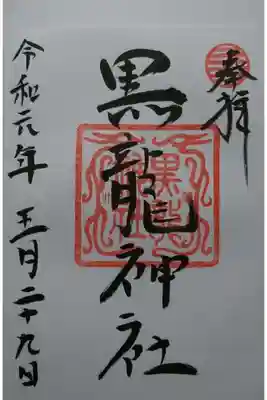 奉拝
黒龍神社
令和元年五月二十九日